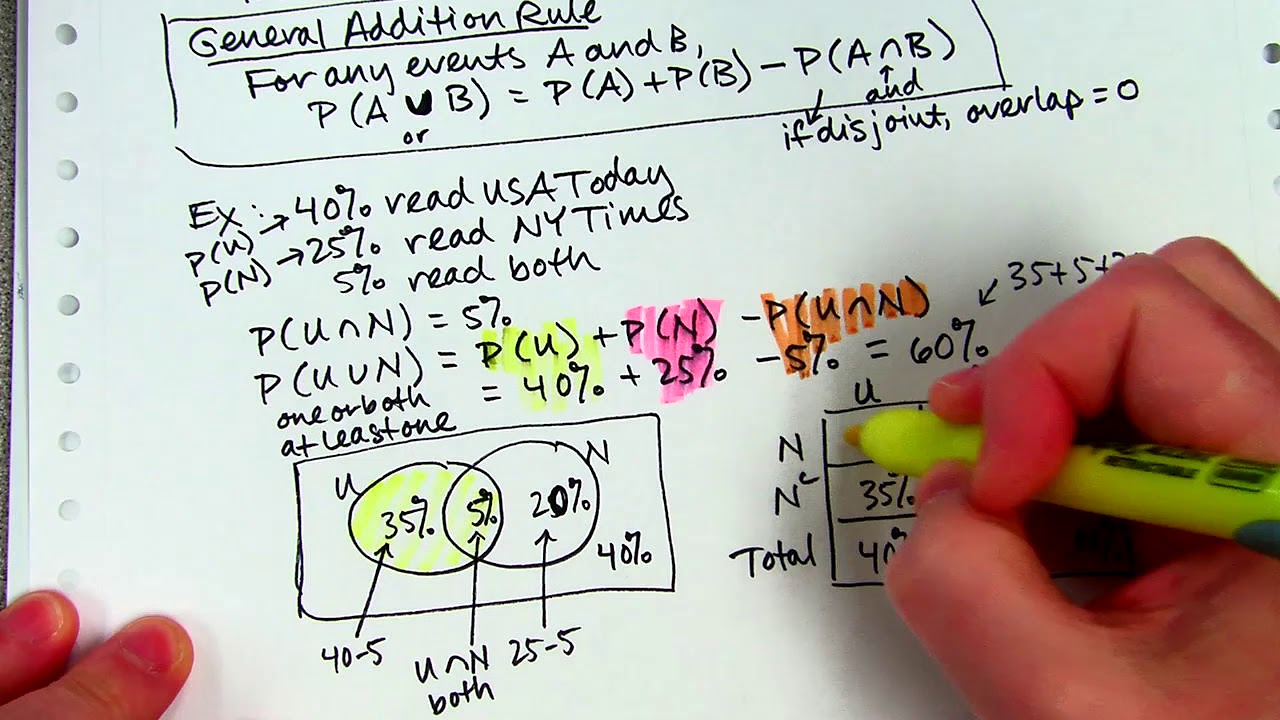 General Addition Rule
For any events A and B,
P(A ∪ B) = P(A) + P(B) − P(A ∩ B)
or
and
if disjoint, overlap = 0
Ex: → 40% read USA Today
P(U) → 25% read NY Times
P(N) 5% read both
P(U ∩ N) = 5%
P(U ∪ N) = P(U) + P(N) − P(U ∩ N)
= 40% + 25% − 5% = 60%
35+5+
one or both
at least one
U
N
35%
5%
20%
40%
40-5
U ∩ N
both
25-5
U
N
Nᶜ 35%
Total 40